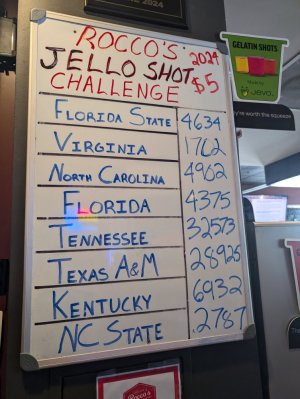 2024
ROCCO'S 2024
JELLO SHOT $5
CHALLENGE
FLORIDA STATE 4634
VIRGINIA 1762
NORTH CAROLINA 4902
FLORIDA 4375
TENNESSEE 32573
TEXAS A&M 28925
KENTUCKY 6932
NC STATE 2787
GELATIN SHOTS
Made by
Jevo
're worth the squeeze
Rocco's